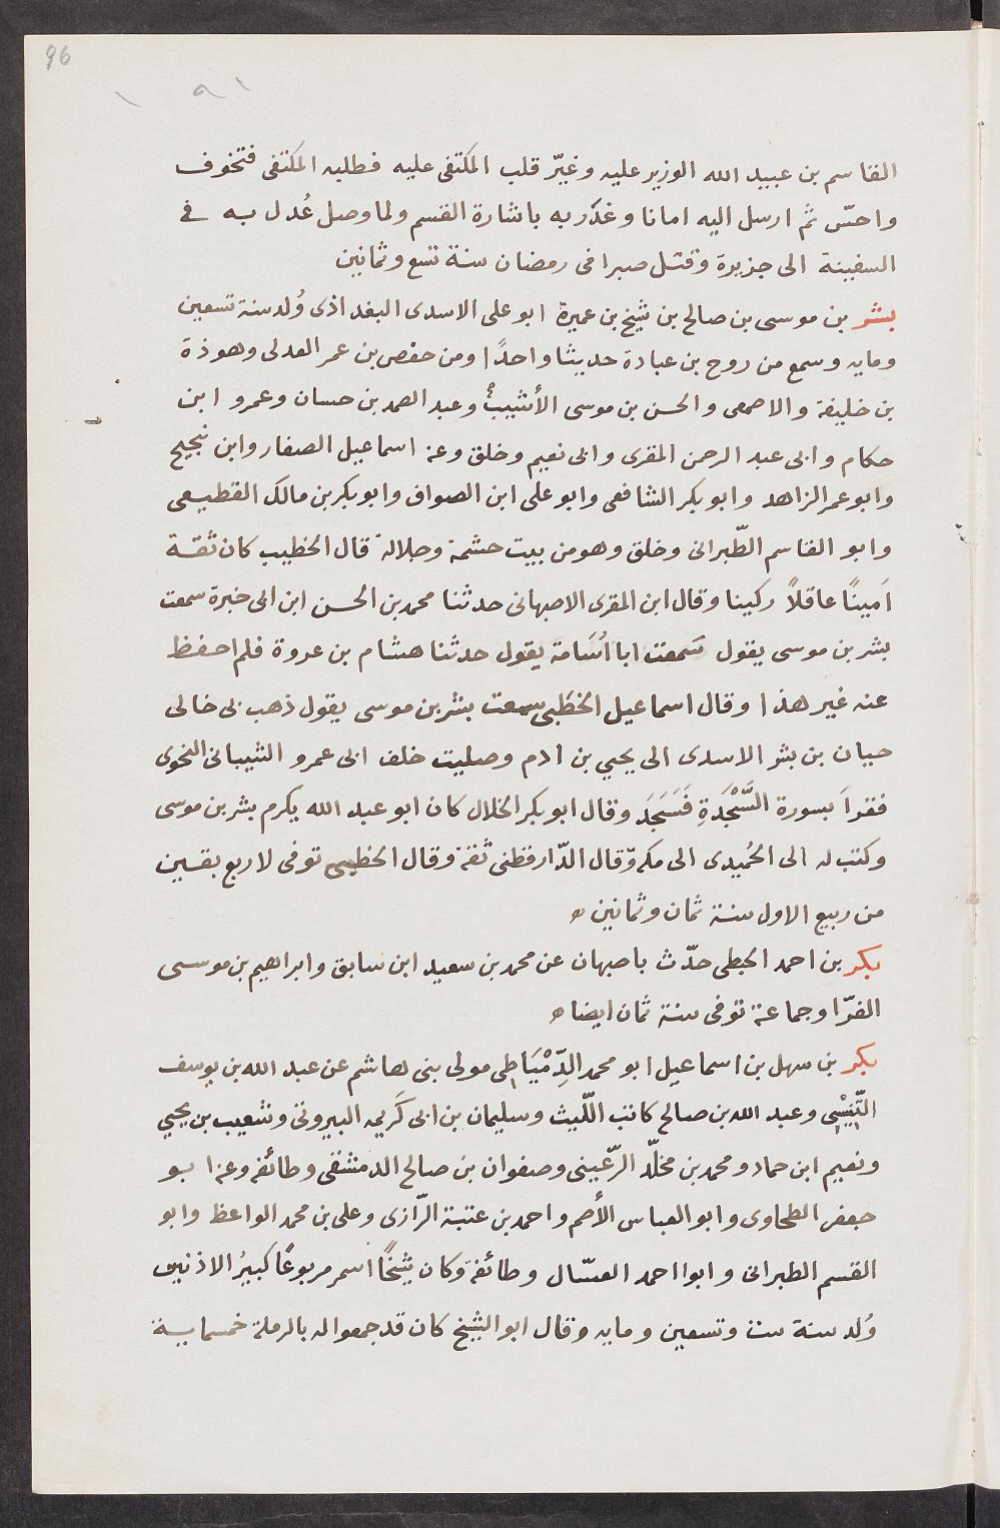 96
القاسم بن عبيد الله الوزير عليه وغيّر قلب المكتفى عليه فطلبه المكتفى فتخوف
واحسّ ثم ارسل اليه امانا وغدَر به باشارة القسم ولما وصل عُدل به فى
السفينة الى جزيرة وقتل صبرا فى رمضان سنة تسع وثمانين
بشر بن موسى بن صالح بن شيخ بن عميرة ابو على الاسدى البغداذى وُلد سنة تسعين
ومايه وسمع من روح بن عبادة حديثا واحدًا ومن حفص بن عمر العدلى وهوذة
بن خليفة والاصمعى والحسن بن موسى الأشيبُ وعبد الصمد بن حسان وعمرو ابن
حكام وابى عبد الرحمن المقرى وابى نعيم وخلق وعنه اسماعيل الصفار وابن نجيح
وابو عمر الزاهد وابو بكر الشافعى وابو على ابن الصواف وابو بكر بن مالك القطيعى
وابو القاسم الطّبرانى وخلق وهو من بيت حشمة وجلالة قال الخطيب كان ثقة
اَمينًا عاقلاً ركينا وقال ابن المقرى الاصبهانى حدثنا محمد بن الحسن ابن ابى خبرة سمعت
بشر بن موسى يقول سَمعت ابا اُسَامة يقول حدثنا هشام بن عروة فلم احفظ
عنه غير هذا وقال اسماعيل الخطَبى سمعت بشر بن موسى يقول ذهب بى خالى
حيان بن بشر الاسدى الى يحيي بن ادم وصليت خلف ابى عمرو الشيبانى النحوى
فقرأ بسورة السَّجْدَةِ فَسَجَدَ وقال ابو بكر الخلال كان ابو عبد الله يكرم بشر بن موسى
وكتب له الى الحُميدى الى مكه وّقال الدّارقطنى ثقة وقال الخطبى توفى لاربع بقين
من ربيع الاول سنة ثمان وثمانين ه
بكر بن احمد الحبطى حدّث باصبهان عن محمد بن سعيد ابن سابق وابراهيم بن موسى
الفرّا وجماعة توفى سنة ثمان ايضا ه
بكر بن سهل بن اسماعيل ابو محمد الدِّمْيَاطى مولى بنى هاشم عن عبد الله بن يوسف
التّنِيْسِى وعبد الله بن صالح كاتب اللّيث وسليمان بن ابى كَريمه البيروتى وشعيب بن يحيي
ونعيم ابن حماد ومحمد بن مخلّد الرّعينى وصفوان بن صالح الدمشقى وطائفه وعنه ابو
جعفر الطحاوى وابو العباس الأصم واحمد بن عتبة الرّازى وعلى بن محمد الواعظ وابو
القسم الطبرانى وابوا احمد العسّال وطائفة وكان شيخًا اسمر مربوعًا كبيرُ الاذنين
وُلد سنة ست وتسعين ومايه وقال ابو الشيخ كان قد جمعوا له بالرملة خمسماية